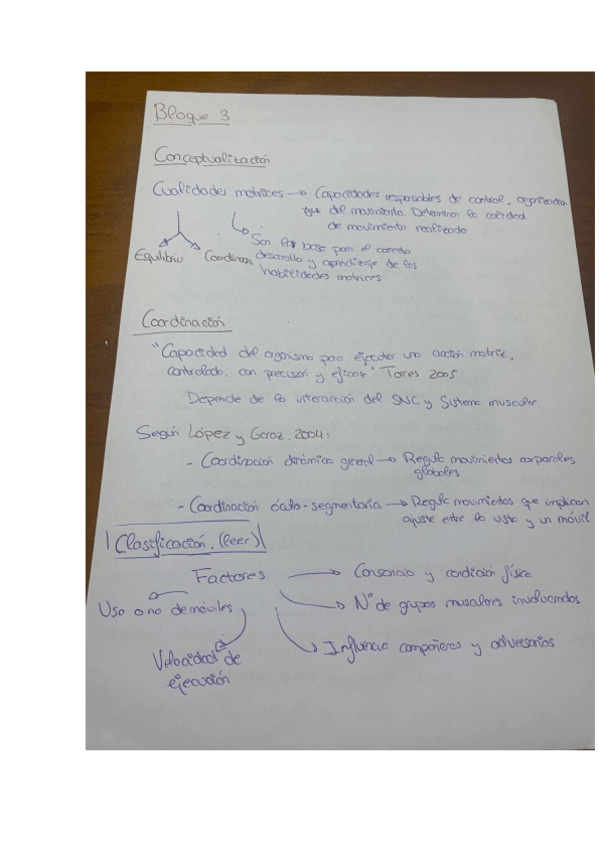 Bloque 3
Conceptualización
Cualidades motrices → Capacidades responsables de control, organización
del movimiento. Determinan la calidad
de movimiento realizado
Son la base para el correcto
Equilibrio Coordinación desarrollo y aprendizaje de las
habilidades motrices
Coordinación
"Capacidad del organismo para ejecutar una acción motriz,
controlada, con precisión y eficacia" Torres 2005
Depende de la interacción del SNC y Sistema muscular
Según López y Garoz, 2004:
- Coordinación dinámica general → Regula movimientos corporales
globales
- Coordinación óculo-segmentaria → Regula movimientos que implican
ajuste entre la vista y un móvil
Clasificación, (leer)
Factores → Cansancio y condición física
Uso o no de móviles → Nº de grupos musculares involucrados
Velocidad de → Influencia compañeros y adversarios
ejecución